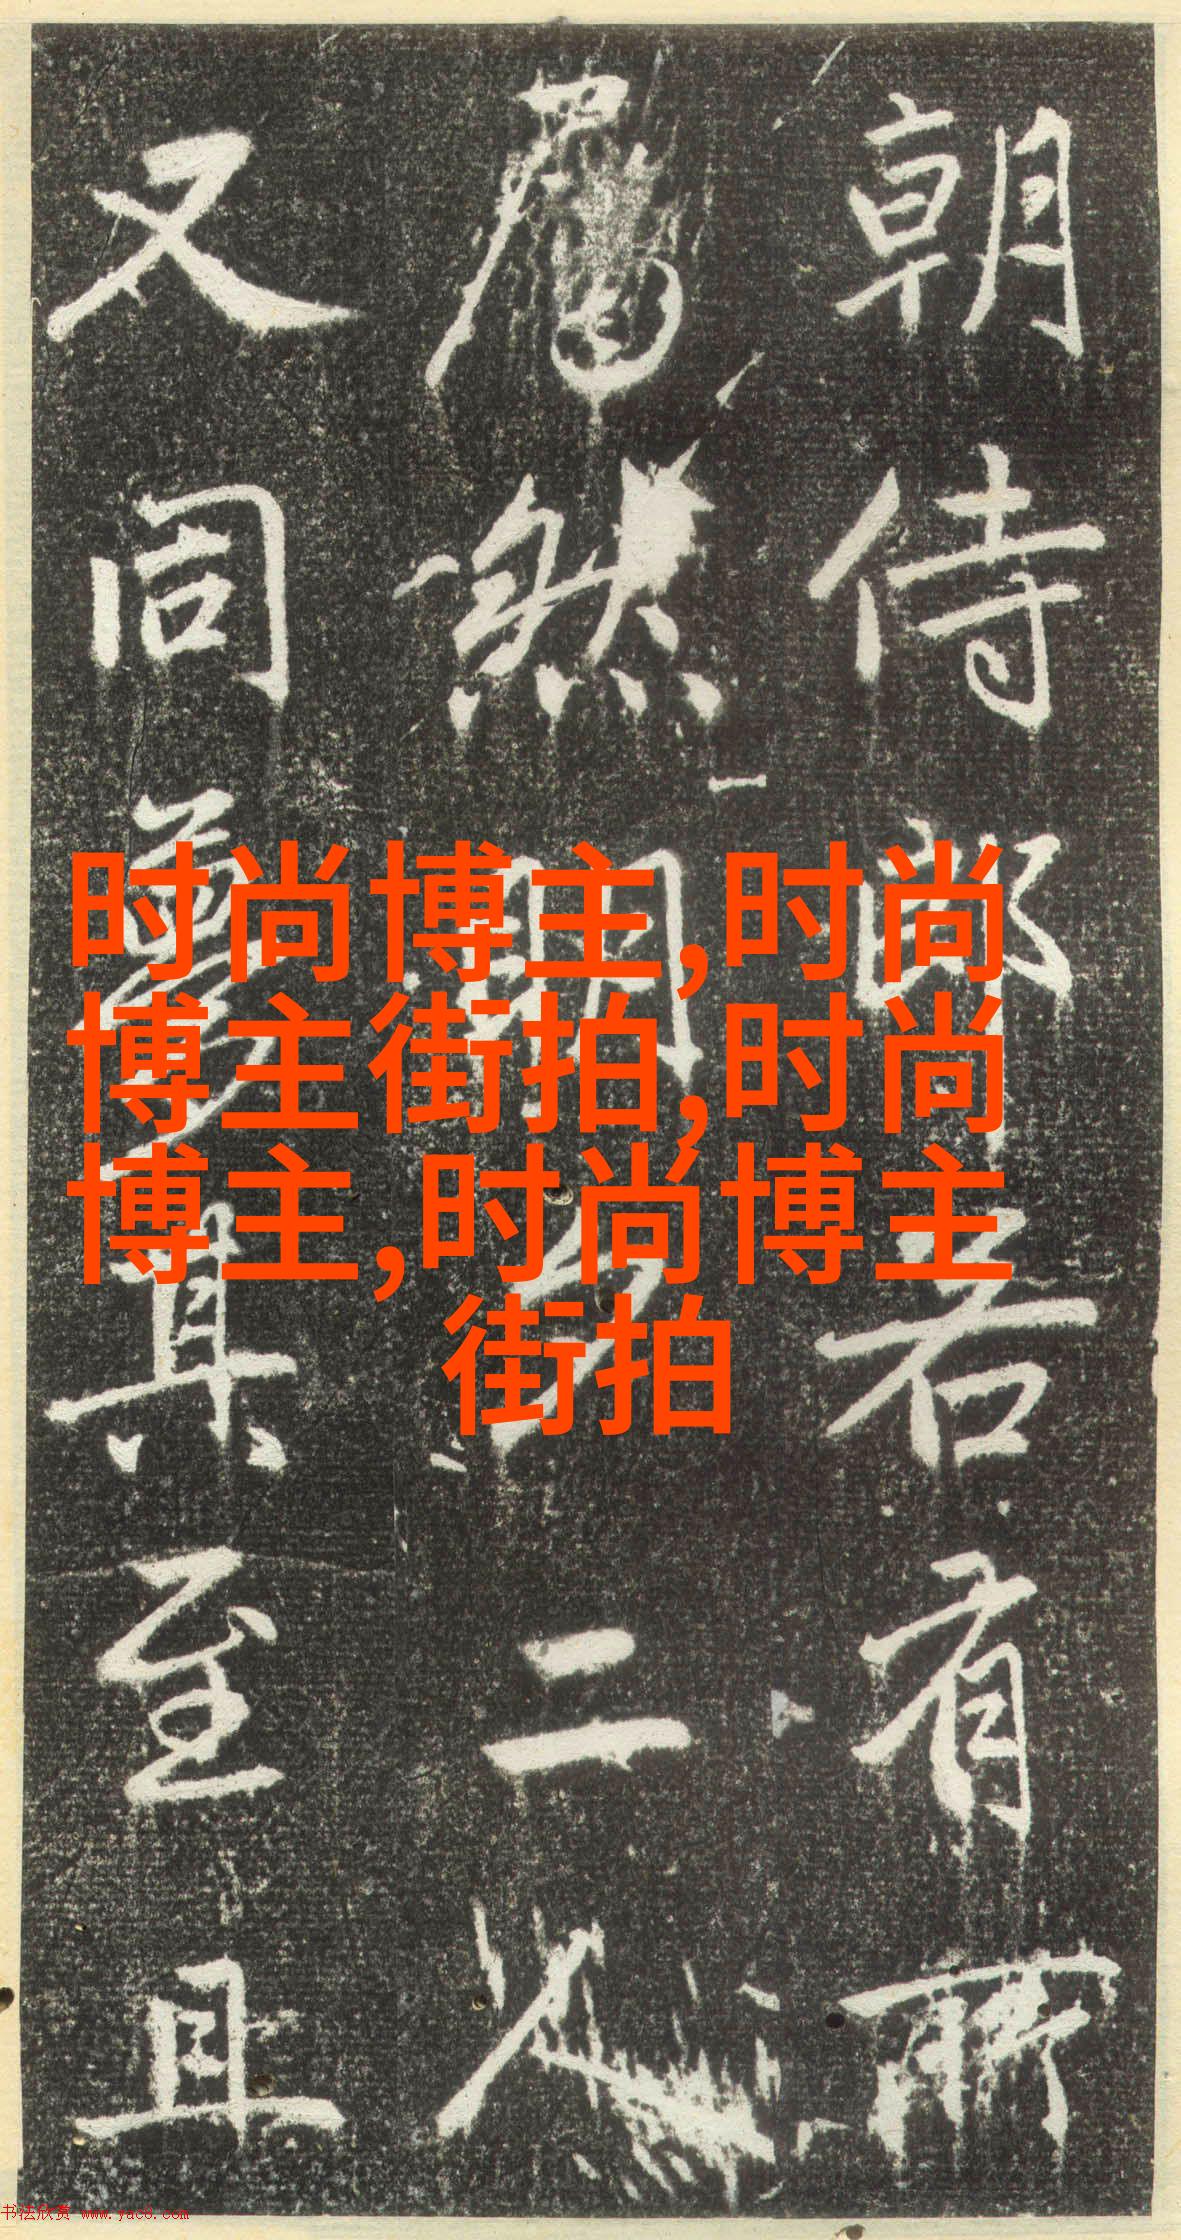 朝侍郎若有所
然明二人
又同夢其至且
时尚博主,时尚
博主街拍,时尚
博主,时尚博主
街拍
书法欣赏 www.yac8.com